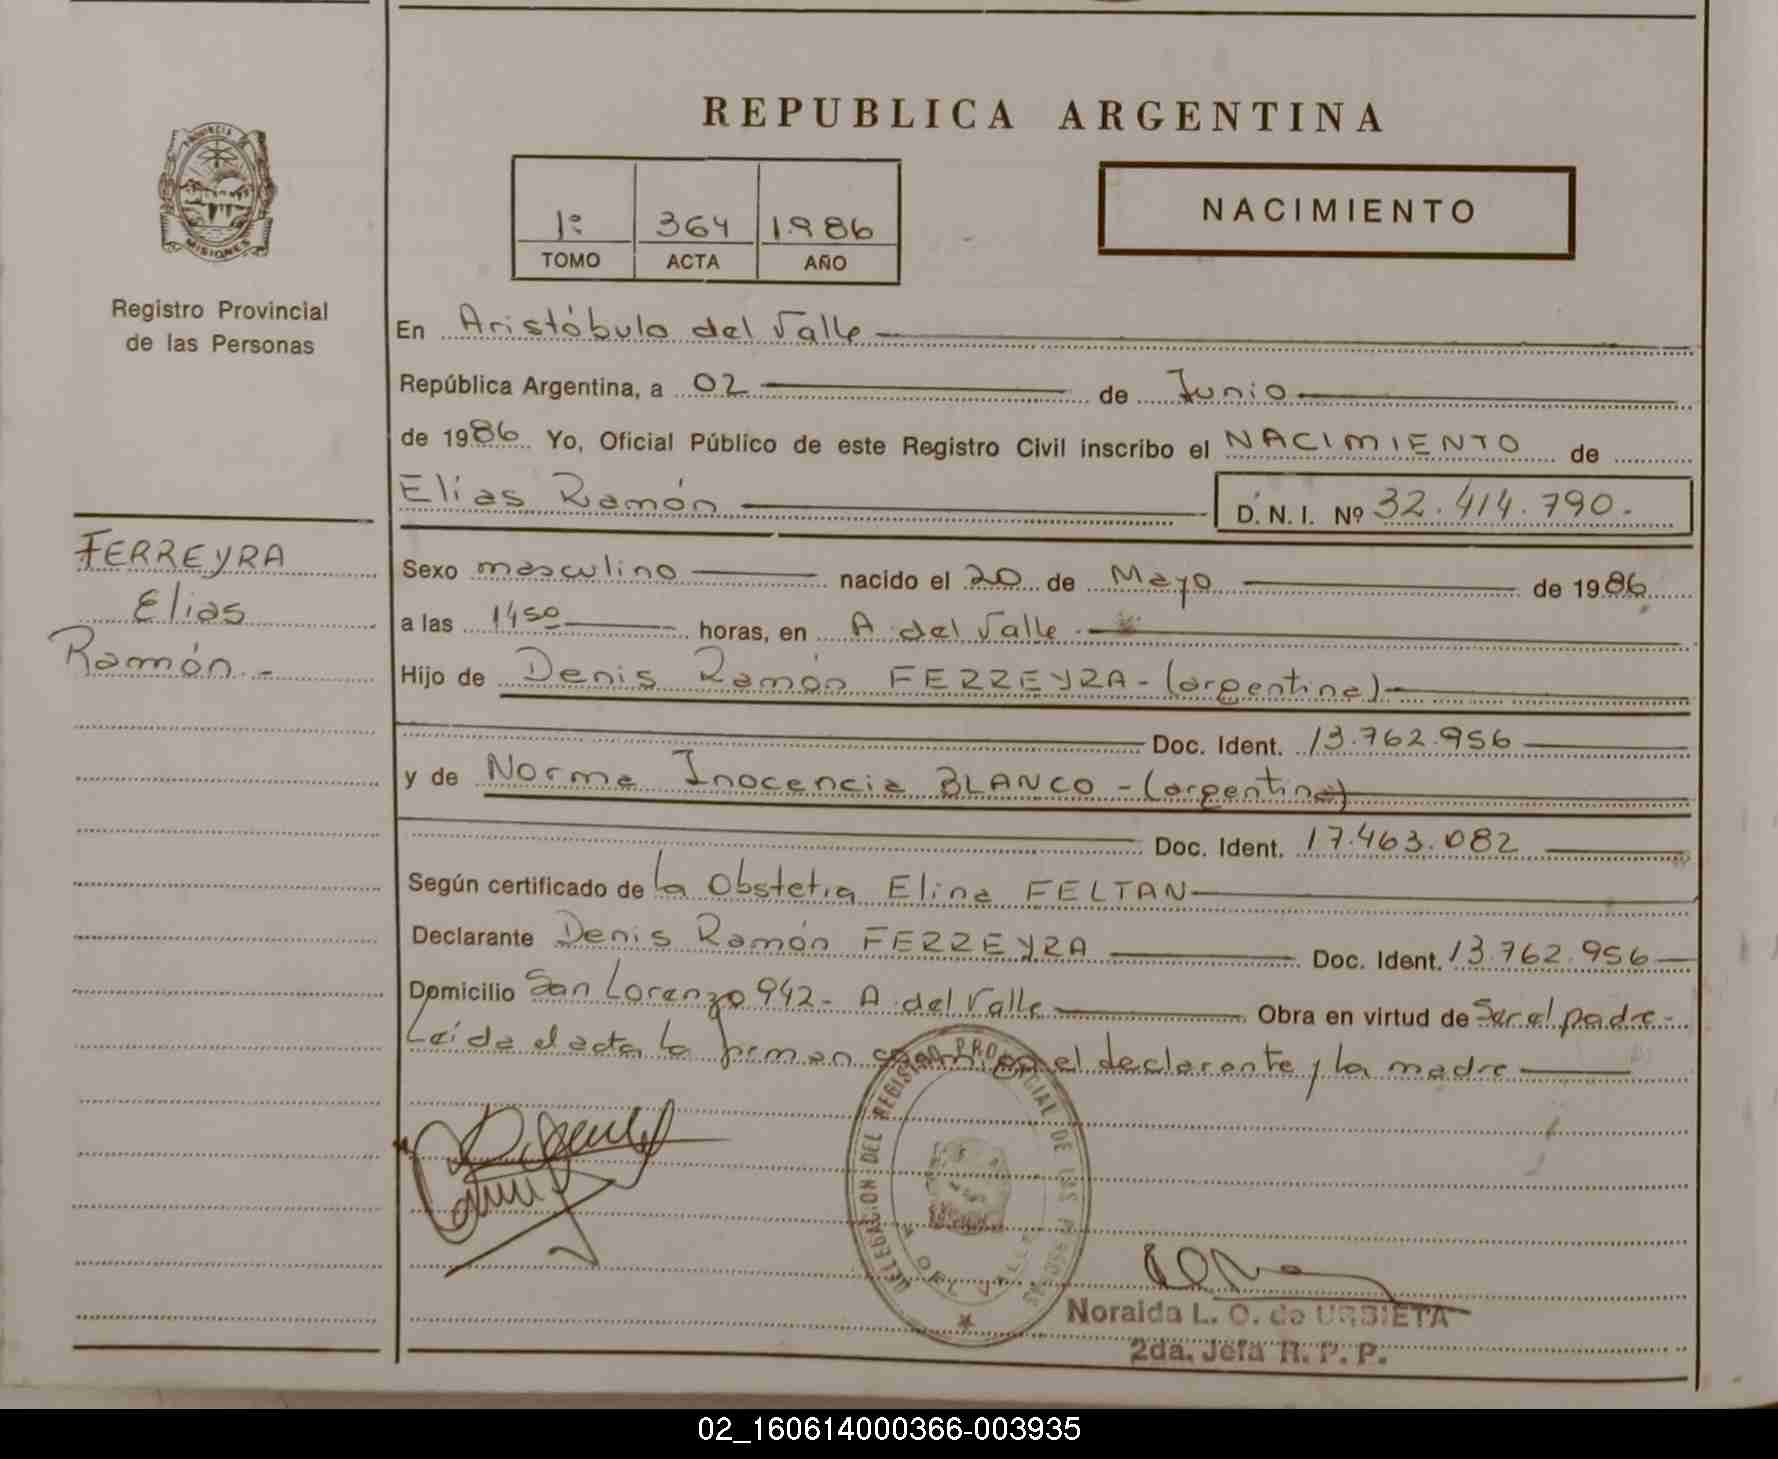 REPUBLICA ARGENTINA
PROVINCIA DE
MISIONES
Registro Provincial
de las Personas
1º 364 1986
TOMO ACTA AÑO
NACIMIENTO
En Aristóbulo del Valle
República Argentina, a 02 de Junio
de 1986 Yo, Oficial Público de este Registro Civil inscribo el NACIMIENTO de
Elias Ramón D.N.I. Nº 32.414.790.-
FERREYRA
Elias
Ramón.-
Sexo masculino nacido el 20 de Mayo de 1986
a las 1450 horas, en A. del Valle.
Hijo de Denis Ramón FERREYRA-(argentina)-
Doc. Ident. 13.762.956
y de Norma Inocencia BLANCO-(argentina)
Doc. Ident. 17.463.082
Según certificado de la Obstetra Elina FELTAN
Declarante Denis Ramón FERREYRA Doc. Ident. 13.762.956
Domicilio San Lorenzo 942- A. del Valle Obra en virtud de Ser el padre-
Leída el acta la firman conmigo el declarante y la madre
DELEGACION DEL REGISTRO PROVINCIAL DE LAS PERSONAS
A. DEL VALLE
Noraida L. O. de URBIETA
2da. Jefa R. P. P.
02_160614000366-003935